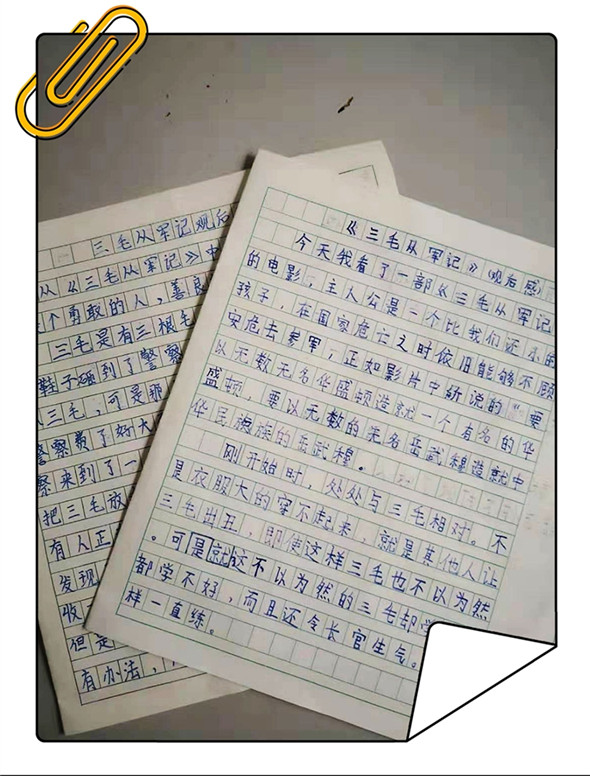 三毛从军记观后
从《三毛从军记》中
个勇敢的人，善良
三毛是有三根毛
鞋子砸到了警察
三毛，可是那
警察费了好大
察来到了一
把三毛放
有人正
发现
收
但是
有办法，
《三毛从军记》（观后感）
今天我看了一部《三毛从军记
的电影，主人公是一个比我们还小的
孩子，在国家危亡之时依旧能够不顾
安危去参军，正如影片中所说的“要
以无数无名华盛顿造就一个有名的华
盛顿，要以无数的无名岳武穆造就中
华民族族的岳武穆。
刚开始时，处处与三毛相对。不
是衣服大的穿不起来，就是其他人让
三毛出丑，即使这样三毛也不以为然
。可是就这不以为然的三毛却
都学不好，而且还令长官生气。
样一直练。